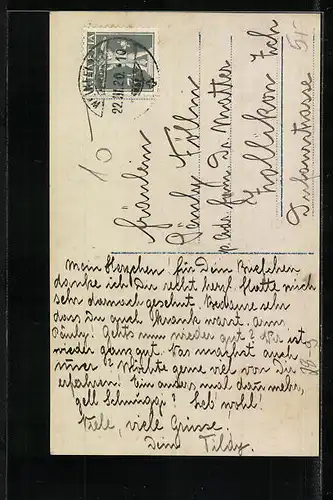 HELVETIA
22.III.20.-10
10
Fräulein
Pauly Föllin
Frau Dr. Matter
Zollikon Zch
Dufourstrasse 5
Mein Herzchen! für Dein Briefchen
danke ich Dir recht herzl. Hatte mich
sehr darnach gesehnt. Bedaure sehr
dass Du auch krank warst, arms
Pauly! Gehts nun wieder gut? Mir ist
wieder ganz gut. Was machst auch
immer? Möchte gerne viel von Dir
erfahren! Ein anders mal dann mehr,
gell Schnuggi? Leb' wohl!
Viele, viele Grüsse.
Dein Tildy.